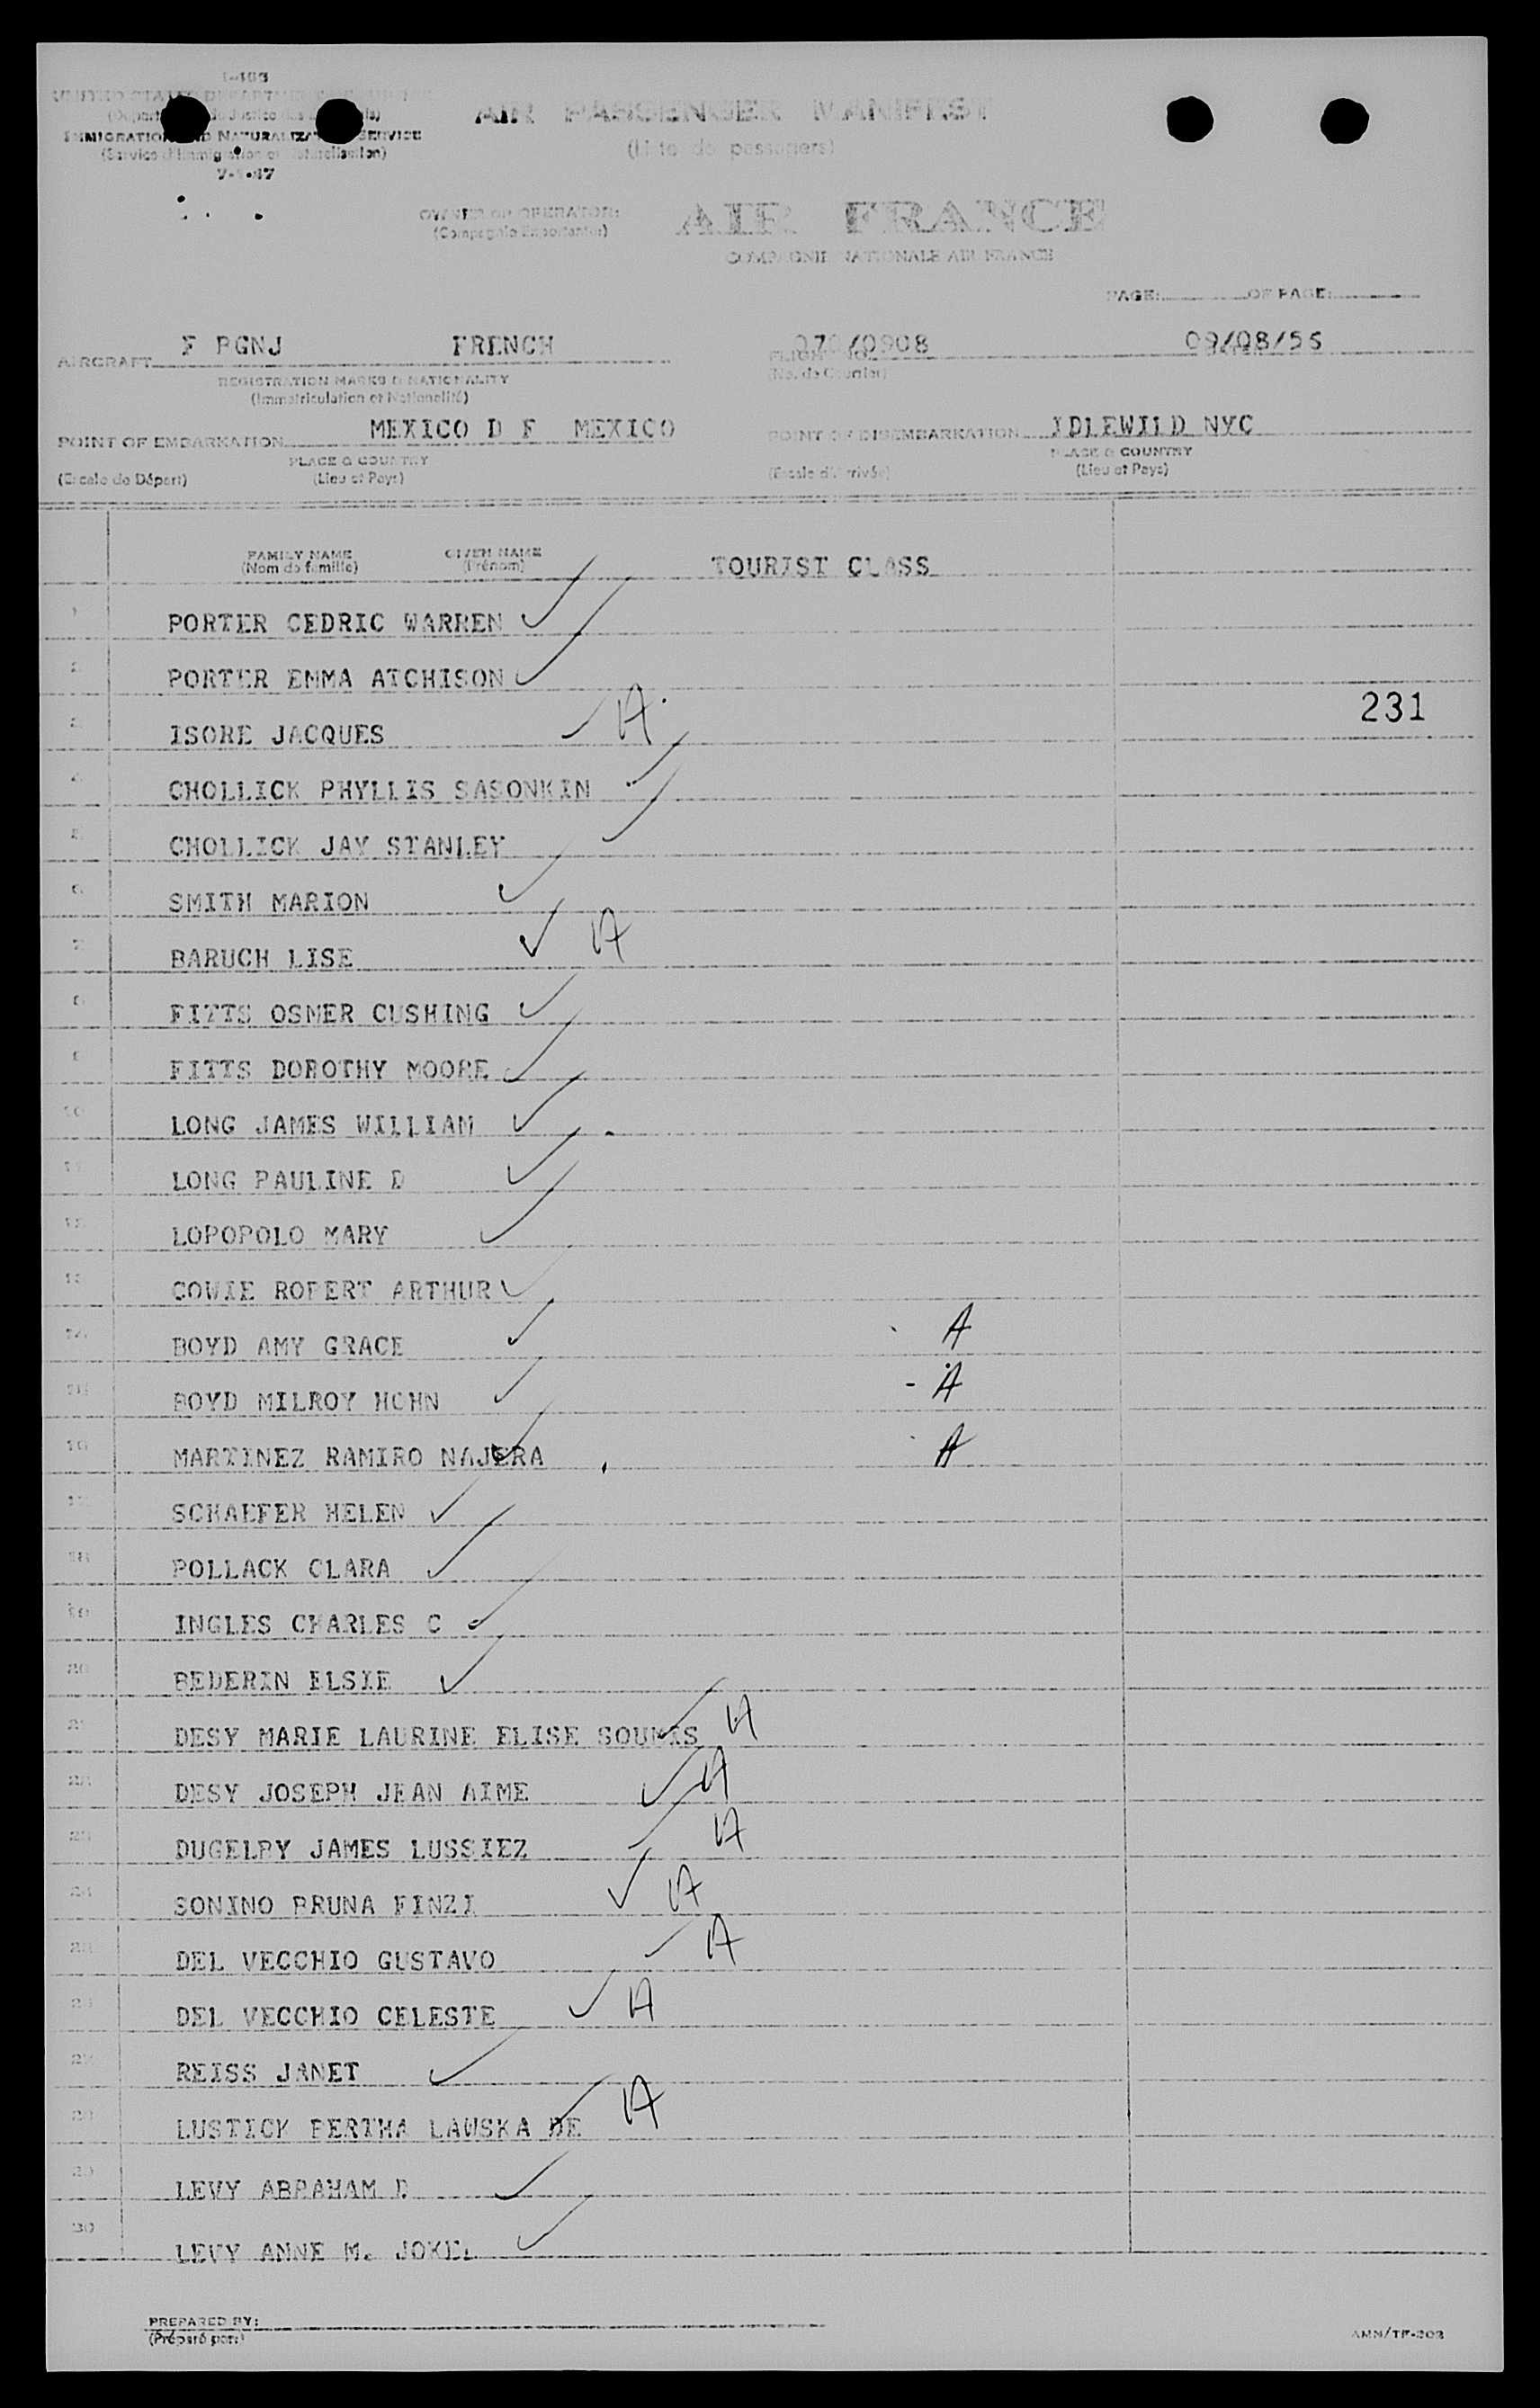 I-466
UNITED STATES DEPARTMENT OF JUSTICE
IMMIGRATION AND NATURALIZATION SERVICE
(Service d'Immigration et Naturalisation)
AIR PASSENGER MANIFEST
(Liste de passagers)
OWNER OR OPERATOR:
(Compagnie Exportante)
AIR FRANCE
COMPAGNIE NATIONALE AIR FRANCE
PAGE: OF PAGE:
AIRCRAFT F BGNJ FRENCH /0908 09/08/56
REGISTRATION MARKS & NATIONALITY
(Immatriculation et Nationalité)
FLIGHT NO.
(No. de Courrier)
POINT OF EMBARKATION MEXICO D F MEXICO POINT OF DISEMBARKATION IDLEWILD NYC
PLACE & COUNTRY PLACE & COUNTRY
(Escale de Départ) (Lieu et Pays) (Escale d'Arrivée) (Lieu et Pays)
FAMILY NAME GIVEN NAME
(Nom de famille) (Prénom) TOURIST CLASS
1 PORTER CEDRIC WARREN ✓
2 PORTER EMMA ATCHISON ✓
231
3 ISORE JACQUES ✓ A
4 CHOLLICK PHYLLIS SASONKIN ✓
5 CHOLLICK JAY STANLEY ✓
6 SMITH MARION ✓
7 BARUCH LISE ✓ A
8 FITTS OSMER CUSHING ✓
9 FITTS DOROTHY MOORE ✓
10 LONG JAMES WILLIAM ✓
11 LONG PAULINE D ✓
12 LOPOPOLO MARY ✓
13 COWIE ROBERT ARTHUR ✓
14 BOYD AMY GRACE ✓ A
15 BOYD MILROY HOHN ✓ - A
16 MARTINEZ RAMIRO NAJERA ✓ A
17 SCHAEFER HELEN ✓
18 POLLACK CLARA ✓
19 INGLES CHARLES C ✓
20 BEDERIN ELSIE ✓
21 DESY MARIE LAURINE ELISE SOUMIS ✓ A
22 DESY JOSEPH JEAN AIME ✓ A
23 DUGELBY JAMES LUSSIEZ ✓ A
24 SONINO BRUNA FINZI ✓ A
25 DEL VECCHIO GUSTAVO ✓ A
26 DEL VECCHIO CELESTE ✓ A
27 REISS JANET ✓
28 LUSTICK BERTHA LAWSKA DE ✓ A
29 LEVY ABRAHAM D ✓
30 LEVY ANNE M. JOKEL ✓
PREPARED BY:
(Préparé par:)
AMN/TF-203